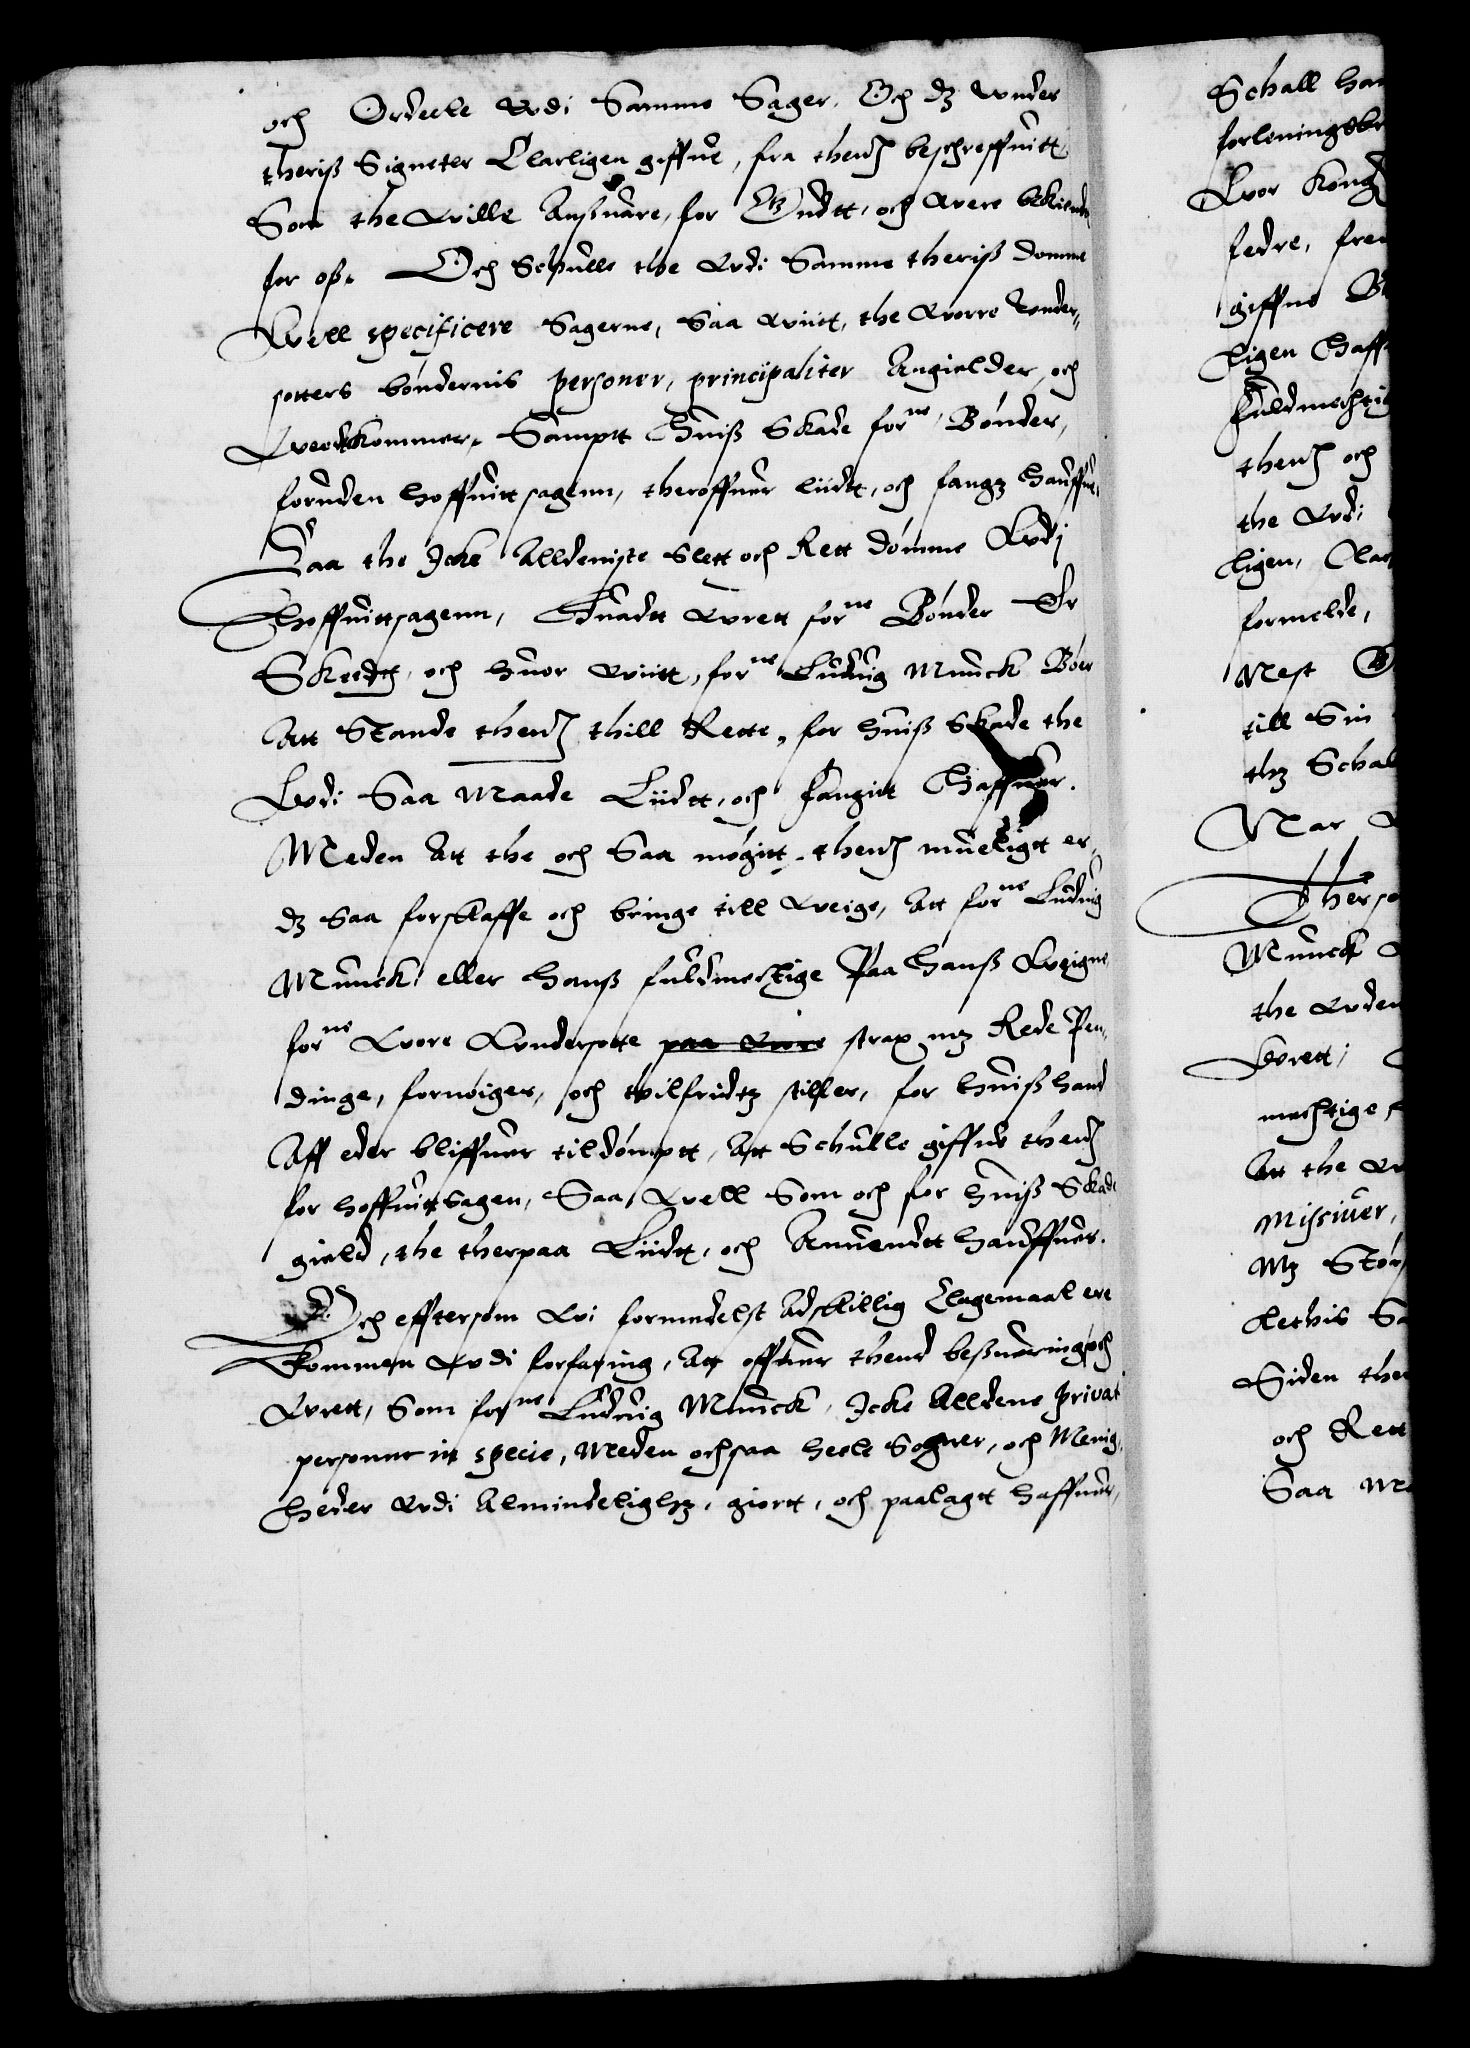 och Ordeele Wdi Samme Sager. Och dz wnder
theris Signeter Clarligen giffue, fra thend beschreffuitt
Som the Wille Ansuare, for Gudtt, och Were bekiendt
for oss. Och Schulle the Wdi Samme theris domme
Well specificere Sagerne, Saa Wiitt, the Worre Wnder„
sotters bøndernis personer, principaliter Angielder, och
Wedkommer, Sampt Huis Skade forne Bønder,
foruden hoffuitt sagenn, theroffuer liidtt, och fangz hauffue,
Saa the Icke Alldeniste Slett och Rett dømme Wdj
Hoffuittsagenn, Huadtt Wrett forne Bønder Er
Skeedtt, och huor Wiitt, forne Luduig Munck Bøer
Att Stande thend thill Rette, for huis Skade the
Wdi Saa Maade Liidtt, och fangitt Haffuer.
Meden Att the och Saa møgitt thend mueligtt er,
dz Saa forschaffe och bringe till Weige, Att forne Luduig
Munck eller Hans fuldmechtige Paa Hans Weigne
forne Wore Wndersotte paa Wore strax mz Rede Pen„
dinge, fornøiger, och tilfridtz stiller, for huis hand
Aff eder bliffuer tildømptt, Att Schulle giffue thend
for hoffuittsagen, Saa Well Som och for huis Skade
gield, the therpaa Liidtt, och Anuendtt hauffuer.
Och efftersom Wi formedelst Adschillig Clagemaal ere
Kommen Wdi forfaring, Att offuer thend besuering och
Wrett, Som forne Luduig Munck, Icke Alldene privat
personer in specie, Meden ochsaa heele Sogner, och Menig„
heder Wdi Almindelighz, giortt, och paalagtt haffuer,
Schall
forleningsbr
Wor Kong
fedre,
giffne
ligen Haff
fuldmechtig
thend och
the Wdi
ligen, Clar
formelde,
Mest
till Sin
thz Schal
Nar
Therso
Munck
the Wden
Wrett,
mechtige
Att the
Missiuer,
Mz Stør
Sa
Siden the
och Rett
Saa Ma